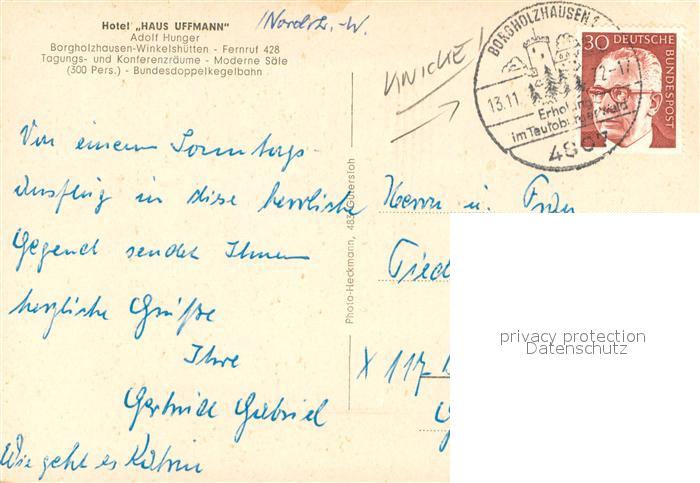 Hotel „HAUS UFFMANN"
Adolf Hunger
Borgholzhausen-Winkelshütten - Fernruf 428
Tagungs- und Konferenzräume - Moderne Säle
(300 Pers.) - Bundesdoppelkegelbahn
/Nordrh.-W.
KNICKE!
BORGHOLZHAUSEN 1
13.11.
2-17
Erholung
im Teutoburger Wald
4807
30 DEUTSCHE
BUNDESPOST
Von einem Sonntags-
ausflug in diese herrliche
Gegend sendet Ihnen
herzliche Grüße
Ihre
Gertrud Gabriel
Wie geht es Katrin
Photo-Heckmann, 483 Gütersloh
Herrn u. Frau
Tied
X 117
privacy protection
Datenschutz